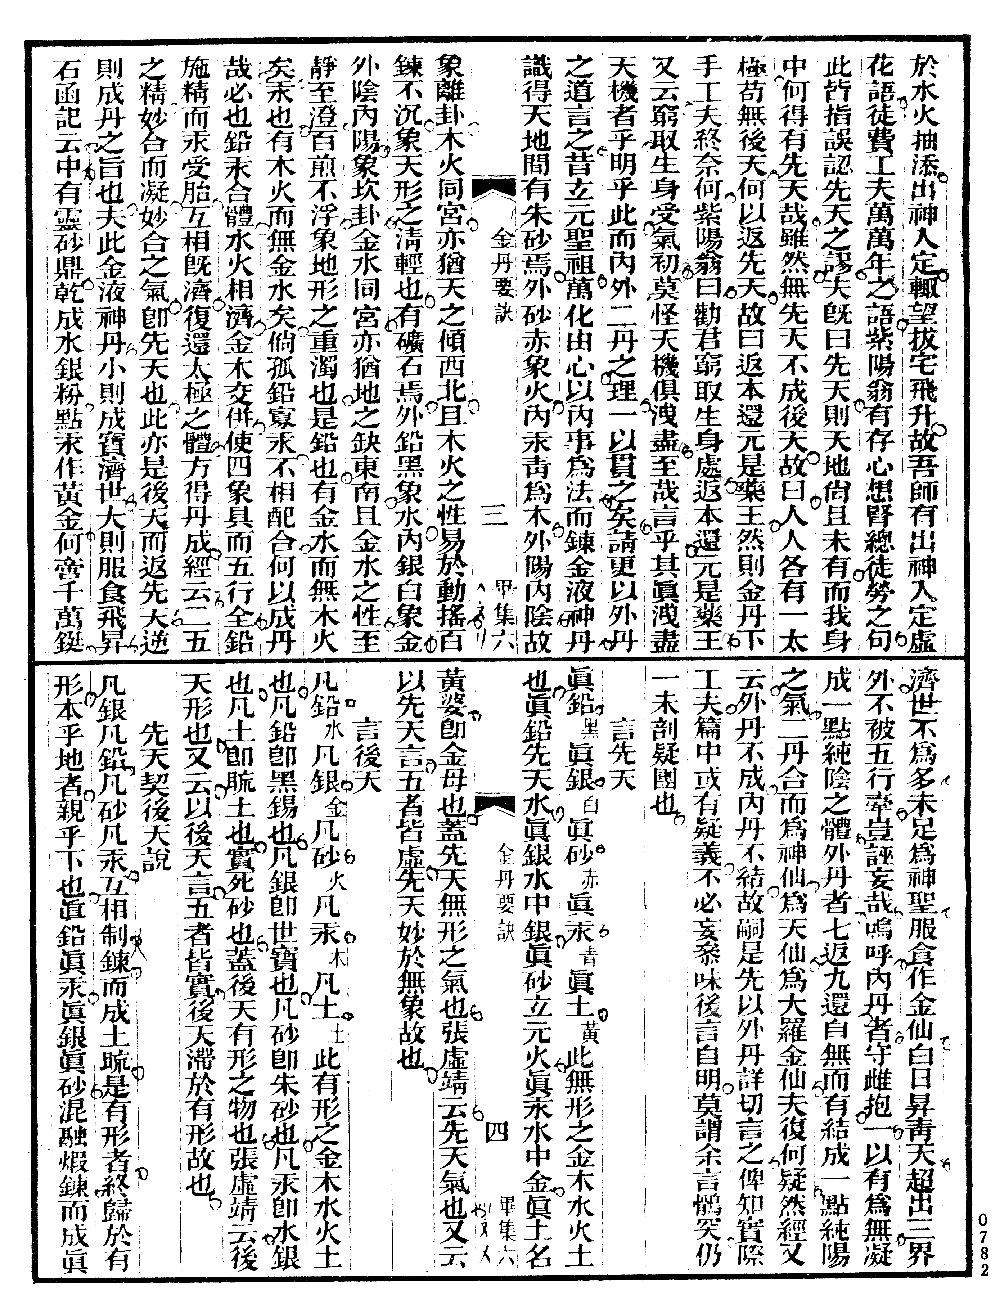 於水火抽添出神入定輒望拔宅飛升故吾師有出神入定虛
花語徒費工夫萬萬年之語紫陽翁有存心想腎總徒勞之句
此皆指誤認先天之謬夫旣曰先天則天地尙且未有而我身
中何得有先天哉雖然無先天不成後天故曰人人各有一太
極苟無後天何以返先天故曰返本還元是藥王然則金丹下
手工夫終奈何紫陽翁曰勸君窮取生身處返本還元是藥王
又云窮取生身受氣初莫怪天機俱洩盡至哉言乎其眞洩盡
天機者乎明乎此而內外二丹之理一以貫之矣請更以外丹
之道言之昔立元聖祖萬化由心以內事爲法而鍊金液神丹
識得天地間有朱砂焉外砂赤象火內汞靑爲木外陽內陰故
金丹要訣
三
畢集六
象離卦木火同宮亦猶天之傾西北且木火之性易於動搖百
鍊不沉象天形之淸輕也有礦石焉外鉛黑象水內銀白象金
外陰內陽象坎卦金水同宮亦猶地之缺東南且金水之性至
靜至澄百煎不浮象地形之重濁也是鉛也有金水而無木火
矣汞也有木火而無金水矣倘孤鉛寡汞不相配合何以成丹
哉必也鉛汞合體水火相濟金木交併使四象具而五行全鉛
施精而汞受胎互相旣濟復還太極之體方得丹成經云二五
之精妙合而凝妙合之氣卽先天也此亦是後天而返先天逆
則成丹之旨也夫此金液神丹小則成寶濟世大則服食飛昇
石函記云中有靈砂鼎乾成水銀粉點汞作黃金何啻千萬鋌
濟世不爲多未足爲神聖服食作金仙白日昇靑天超出三界
外不被五行牽豈誣妄哉嗚呼內丹者守雌抱一以有爲無凝
成一點純陰之體外丹者七返九還自無而有結成一點純陽
之氣二丹合而爲神仙爲天仙爲大羅金仙夫復何疑然經又
云外丹不成內丹不結故嗣是先以外丹詳切言之俾知實際
工夫篇中或有疑義不必妄叅味後言自明莫謂余言鶻突仍
一未剖疑團也
言先天
眞鉛黑眞銀白眞砂赤眞汞靑眞土黃此無形之金木水火土
也眞鉛先天水眞銀水中銀眞砂立元火眞汞水中金眞土名
金丹要訣
四
畢集六
黃婆卽金母也蓋先天無形之氣也張虛靖云先天氣也又云
以先天言五者皆虛先天妙於無象故也
言後天
凡鉛水凡銀金凡砂火凡汞木凡土土此有形之金木水火土
也凡鉛卽黑錫也凡銀卽世寶也凡砂卽朱砂也凡汞卽水銀
也凡土卽貾土也實死砂也蓋後天有形之物也張虛靖云後
天形也又云以後天言五者皆實後天滯於有形故也
先天契後天說
凡銀凡鉛凡砂凡汞互相制鍊而成土貾是有形者終歸於有
形本乎地者親乎下也眞鉛眞汞眞銀眞砂混融煅鍊而成眞
0782